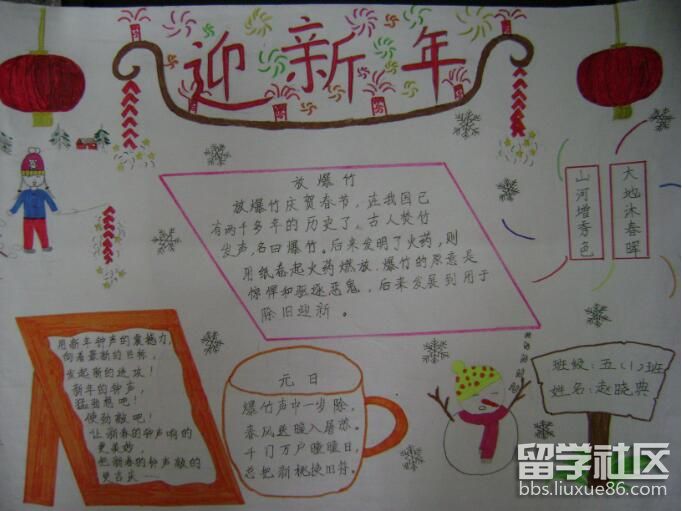 迎新年
放爆竹
放爆竹庆贺春节，在我国已
有两千多年的历史了。古人焚竹
发声，名曰爆竹。后来发明了火药，则
用纸卷起火药燃放。爆竹的原意是
惊惮和驱逐恶鬼，后来发展到用于
除旧迎新。
大地沐春晖
山河增春色
用新年钟声的震撼力，
向着最新的目标，
发起新的进攻！
新年的钟声，
猛劲想吧！
使劲敲吧！
让新春的钟声响的
更美妙，
把新春的钟声敲的
更古典……
元日
爆竹声中一岁除，
春风送暖入屠苏。
千门万户曈曈日，
总把新桃换旧符。
班级：五（1）班
姓名：赵晓典
留学社区
bbs.liuxue86.com